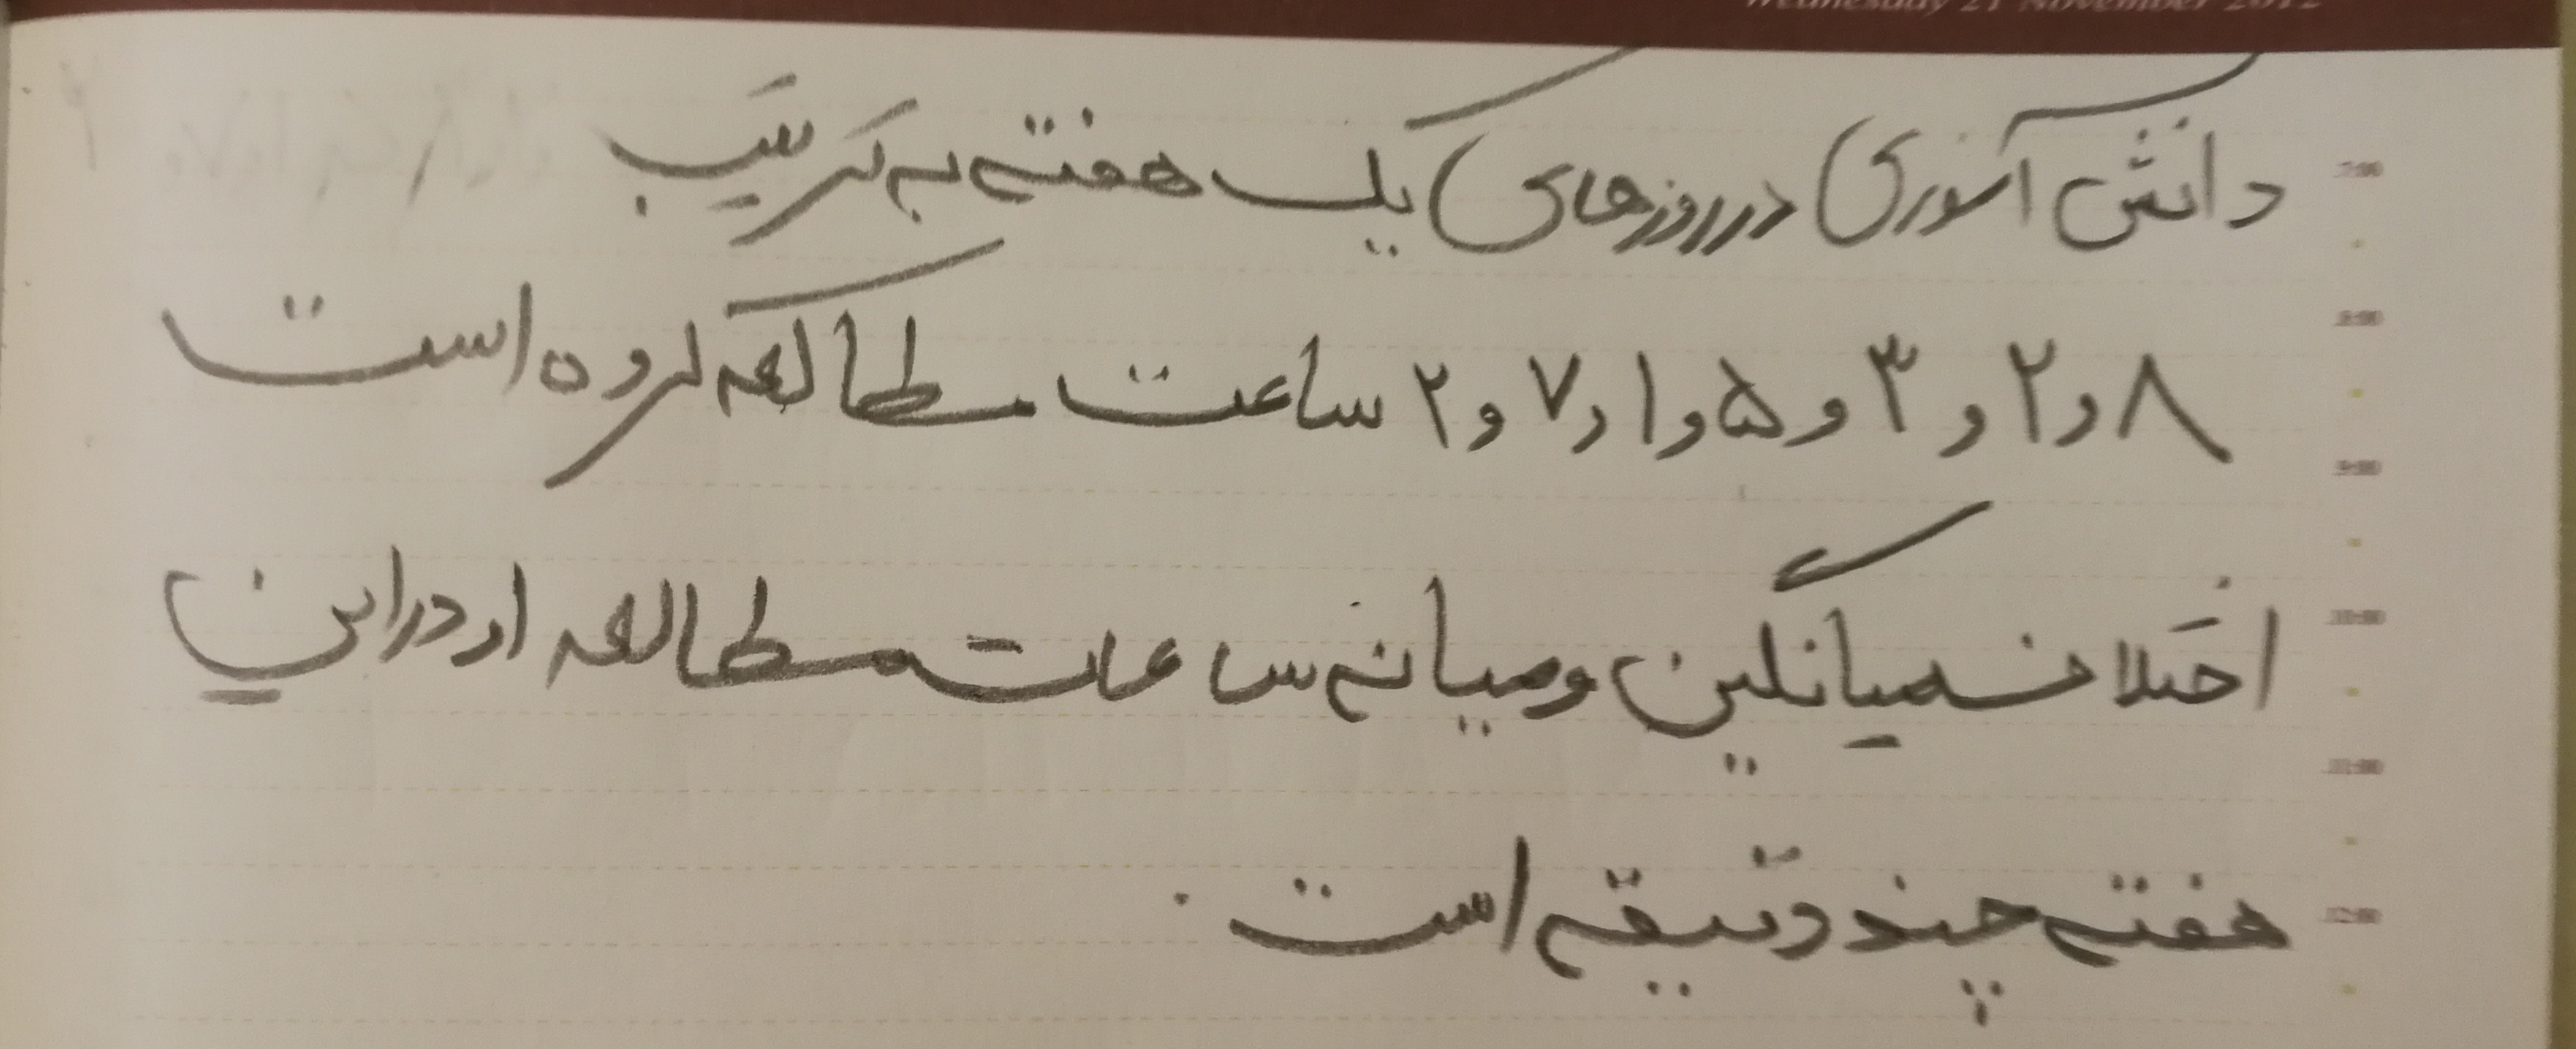 Wednesday 21 November 2012
دانش آموزی در روزهای یک هفته به ترتیب
7:00
۸ و ۲ و ۳ و ۵ و ۱ و ۷ و ۲ ساعت مطالعه کرده است
8:00
9:00
اختلاف میانگین و میانه ساعت مطالعه او در این
10:00
11:00
هفته چند دقیقه است.
12:00